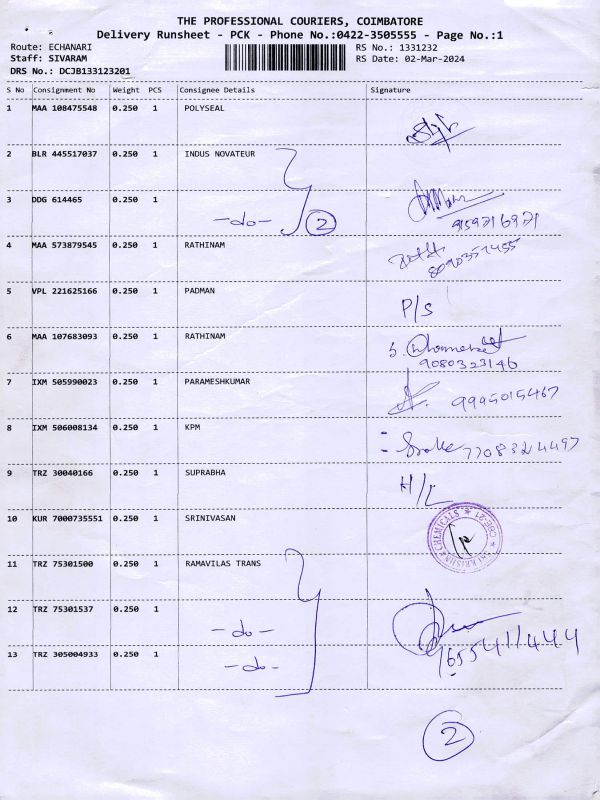 THE PROFESSIONAL COURIERS, COIMBATORE
Delivery Runsheet - PCK - Phone No.:0422-3505555 - Page No.:1
Route: ECHANARI RS No.: 1331232
Staff: SIVARAM RS Date: 02-Mar-2024
DRS No.: DCJB133123201
S No Consignment No Weight PCS Consignee Details Signature
1 MAA 108475548 0.250 1 POLYSEAL
2 BLR 445517037 0.250 1 INDUS NOVATEUR
3 DDG 614465 0.250 1
-do- 2
4 MAA 573879545 0.250 1 RATHINAM
5 VPL 221625166 0.250 1 PADMAN
P/S
6 MAA 107683093 0.250 1 RATHINAM
9080323146
7 IXM 505990023 0.250 1 PARAMESHKUMAR
9995015467
8 IXM 506008134 0.250 1 KPM
7708324497
9 TRZ 30040166 0.250 1 SUPRABHA
H/L
10 KUR 7000735551 0.250 1 SRINIVASAN
11 TRZ 75301500 0.250 1 RAMAVILAS TRANS
12 TRZ 75301537 0.250 1
-do-
13 TRZ 305004933 0.250 1
-do-
2